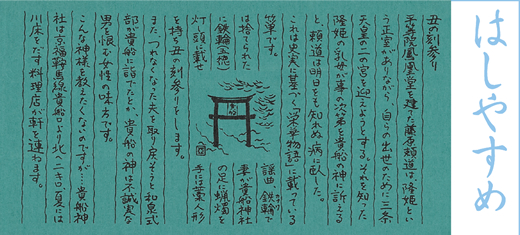 丑の刻参り
平等院鳳凰堂を建てた藤原頼通は、隆姫とい
う正室がありながら、自らの出世のために三条
天皇の二の宮を迎えようとする。それを知った
隆姫の乳母が事の次第を貴船の神に訴える
と、頼通は明日をも知れぬ病に臥した。
これは史実に基づく『栄華物語』に載っている
故事です。
謡曲「鉄輪」で
は捨てられた
妻が貴船神社
に鉄輪(五徳)
の足に蝋燭を
灯し頭に載せ
手に藁人形
を持ち丑の刻参りをします。
また、つれなくなった夫を取り戻そうと和泉式
部が貴船に詣でたとか、貴船の神は不誠実な
男を恨む女性の味方です。
こんな神様を教えたくないのですが…貴船神
社は京福鞍馬線貴船口より北へ二キロ。夏には
川床をだす料理店が軒を連ねます。
貴船
はしやすめ